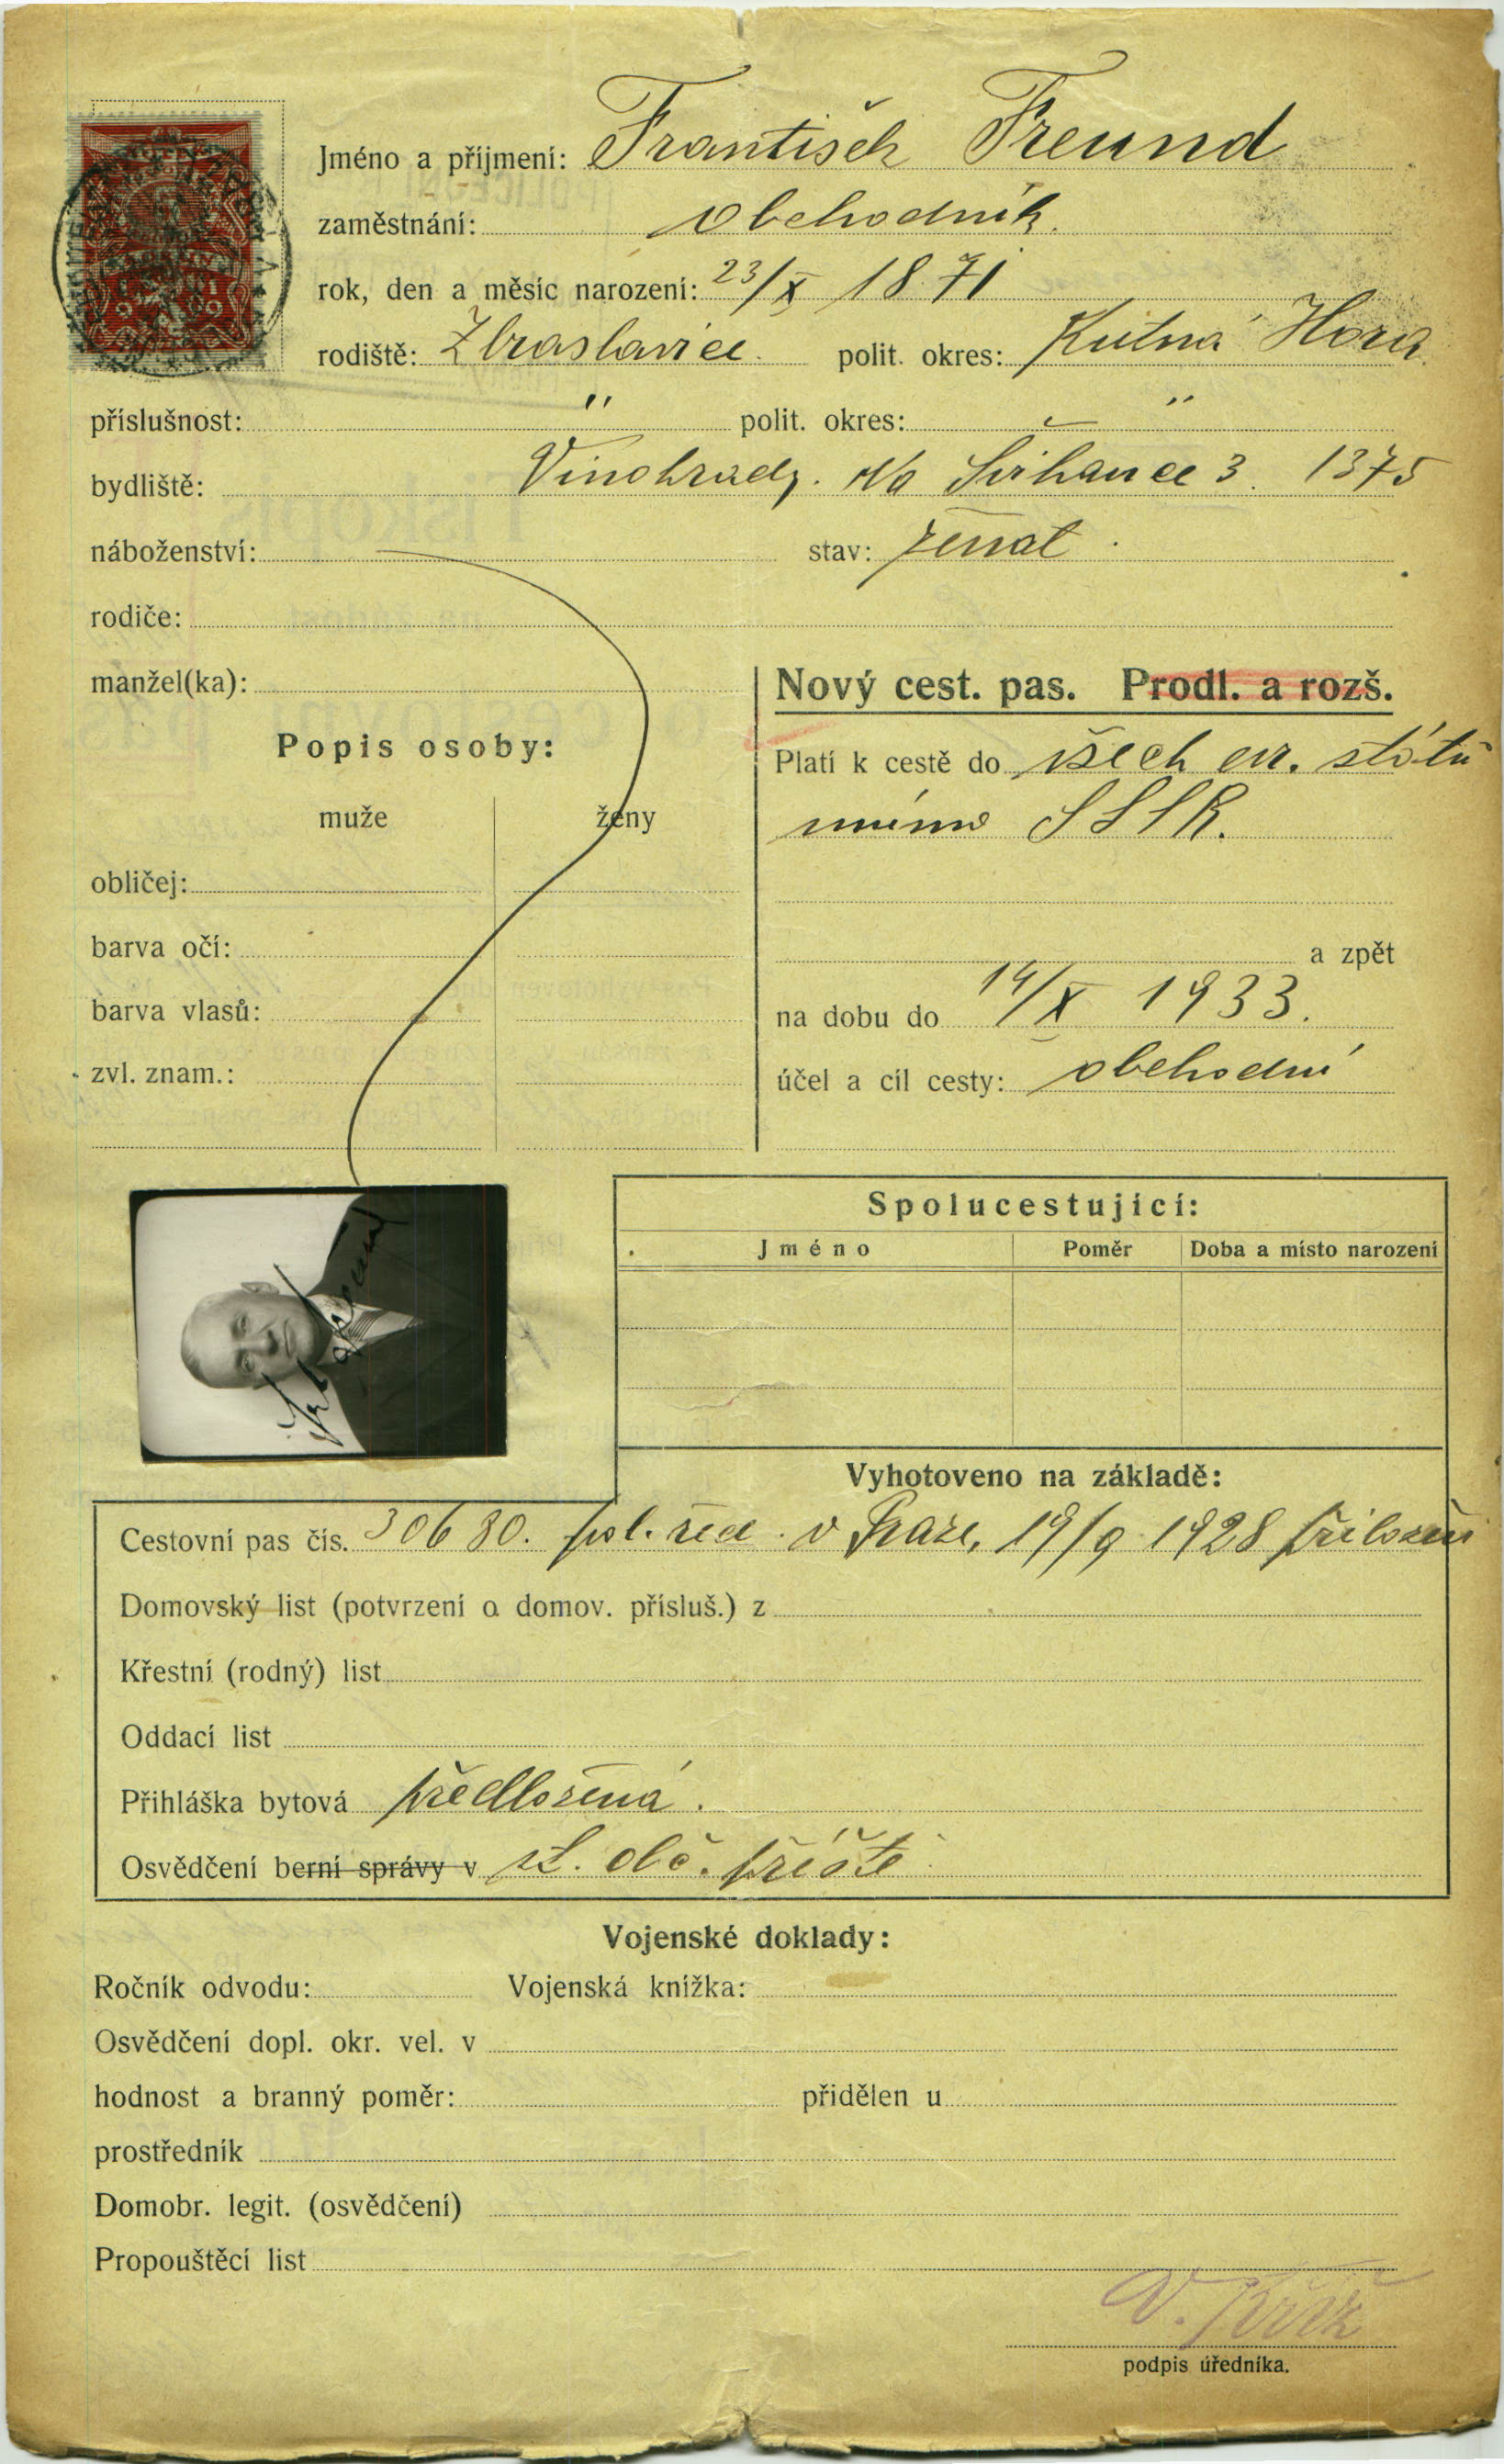 Jméno a příjmení: František Freund
zaměstnání: obchodník.
rok, den a měsíc narození: 23/X 1871
rodiště: Zbraslavice. polit. okres: Kutná Hora
příslušnost: " polit. okres: "
bydliště: Vinohrady. Na Švihance 3. 1375
náboženství: stav: ženat.
rodiče:
manžel(ka):
Nový cest. pas. Prodl. a rozš.
Popis osoby:
Platí k cestě do všech evr. států
muže ženy
mimo SSSR.
obličej:
barva očí:
a zpět
barva vlasů:
na dobu do 14/X 1933.
zvl. znam.:
účel a cíl cesty: obchodní
Spolucestující:
Jméno Poměr Doba a místo narození
Vyhotoveno na základě:
Cestovní pas čís. 30680. pol. řed. v Praze, 19/9 1928 přiložen
Domovský list (potvrzení o domov. přísluš.) z
Křestní (rodný) list
Oddací list
Přihláška bytová předložená.
Osvědčení berní správy v st. obč. příště
Vojenské doklady:
Ročník odvodu: Vojenská knížka:
Osvědčení dopl. okr. vel. v
hodnost a branný poměr: přidělen u
prostředník
Domobr. legit. (osvědčení)
Propouštěcí list
podpis úředníka.